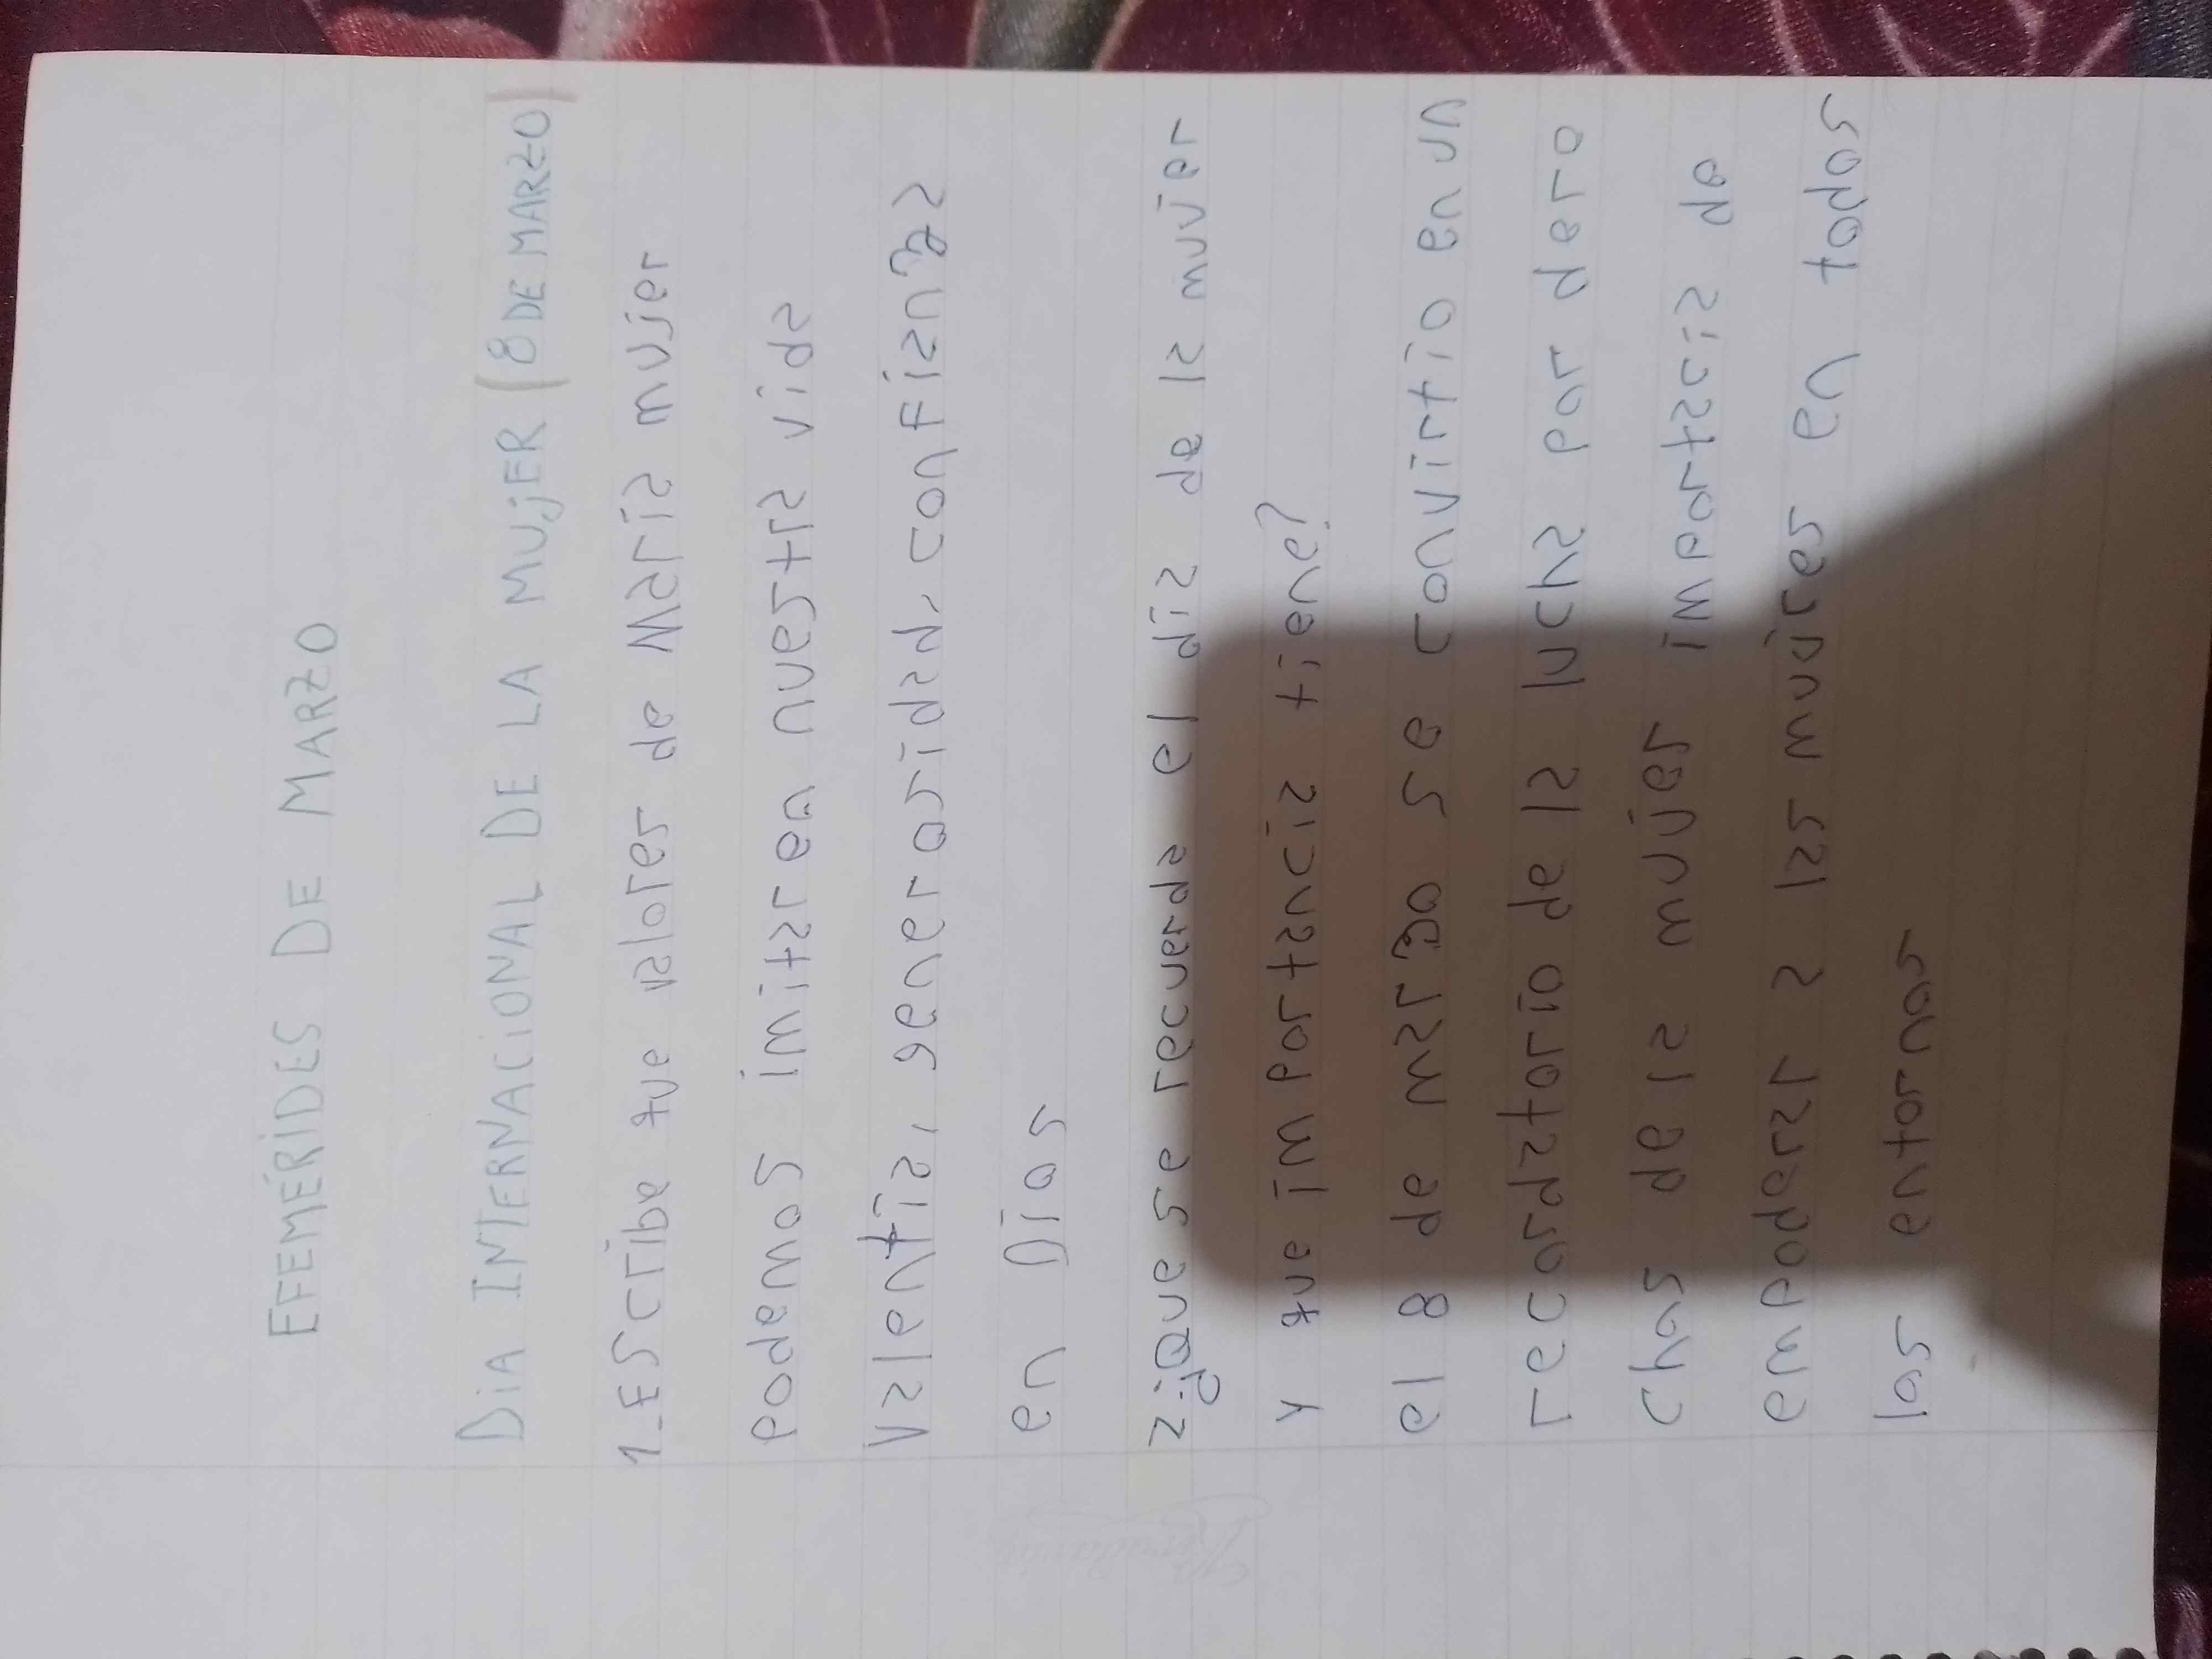 EFEMÉRIDES DE MARZO
DÍA INTERNACIONAL DE LA MUJER (8 DE MARZO)
1_EScribe que valores de María mujer
podemos imitar en nuestra vida
Valentía, generosidad, confianza
en Dios
2.¿Que se recuerda el día de la muver
y que importancia tiene?
el 8 de marzo se convirtio en un
recordatorio de la lucha por dere
chos de la mujer importacia de
empoderar a las muvres en todos
los entornos